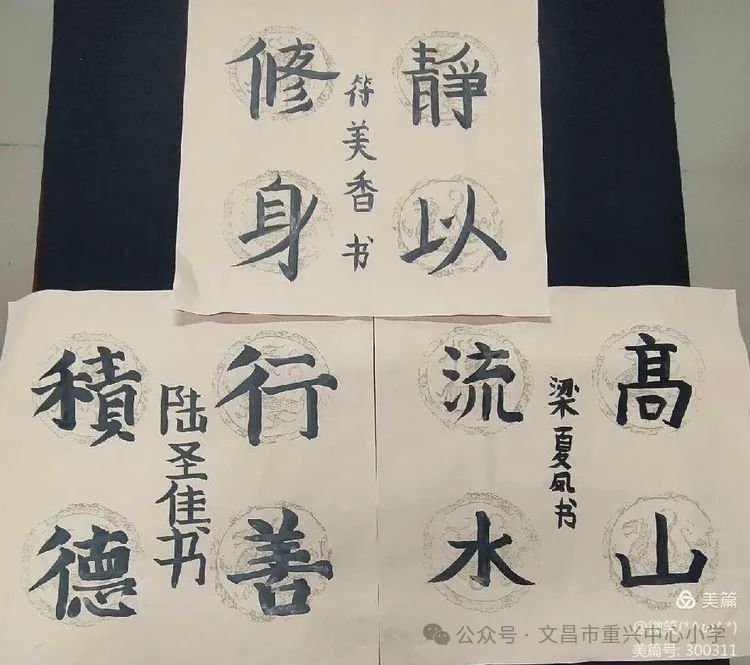 靜以
修身
符美香书
行善
積德
陆圣佳书
髙山
流水
梁夏凤书
美篇
@微笑(*^ω^*)
公众号·文昌市重兴中心小学
美篇号: 300311